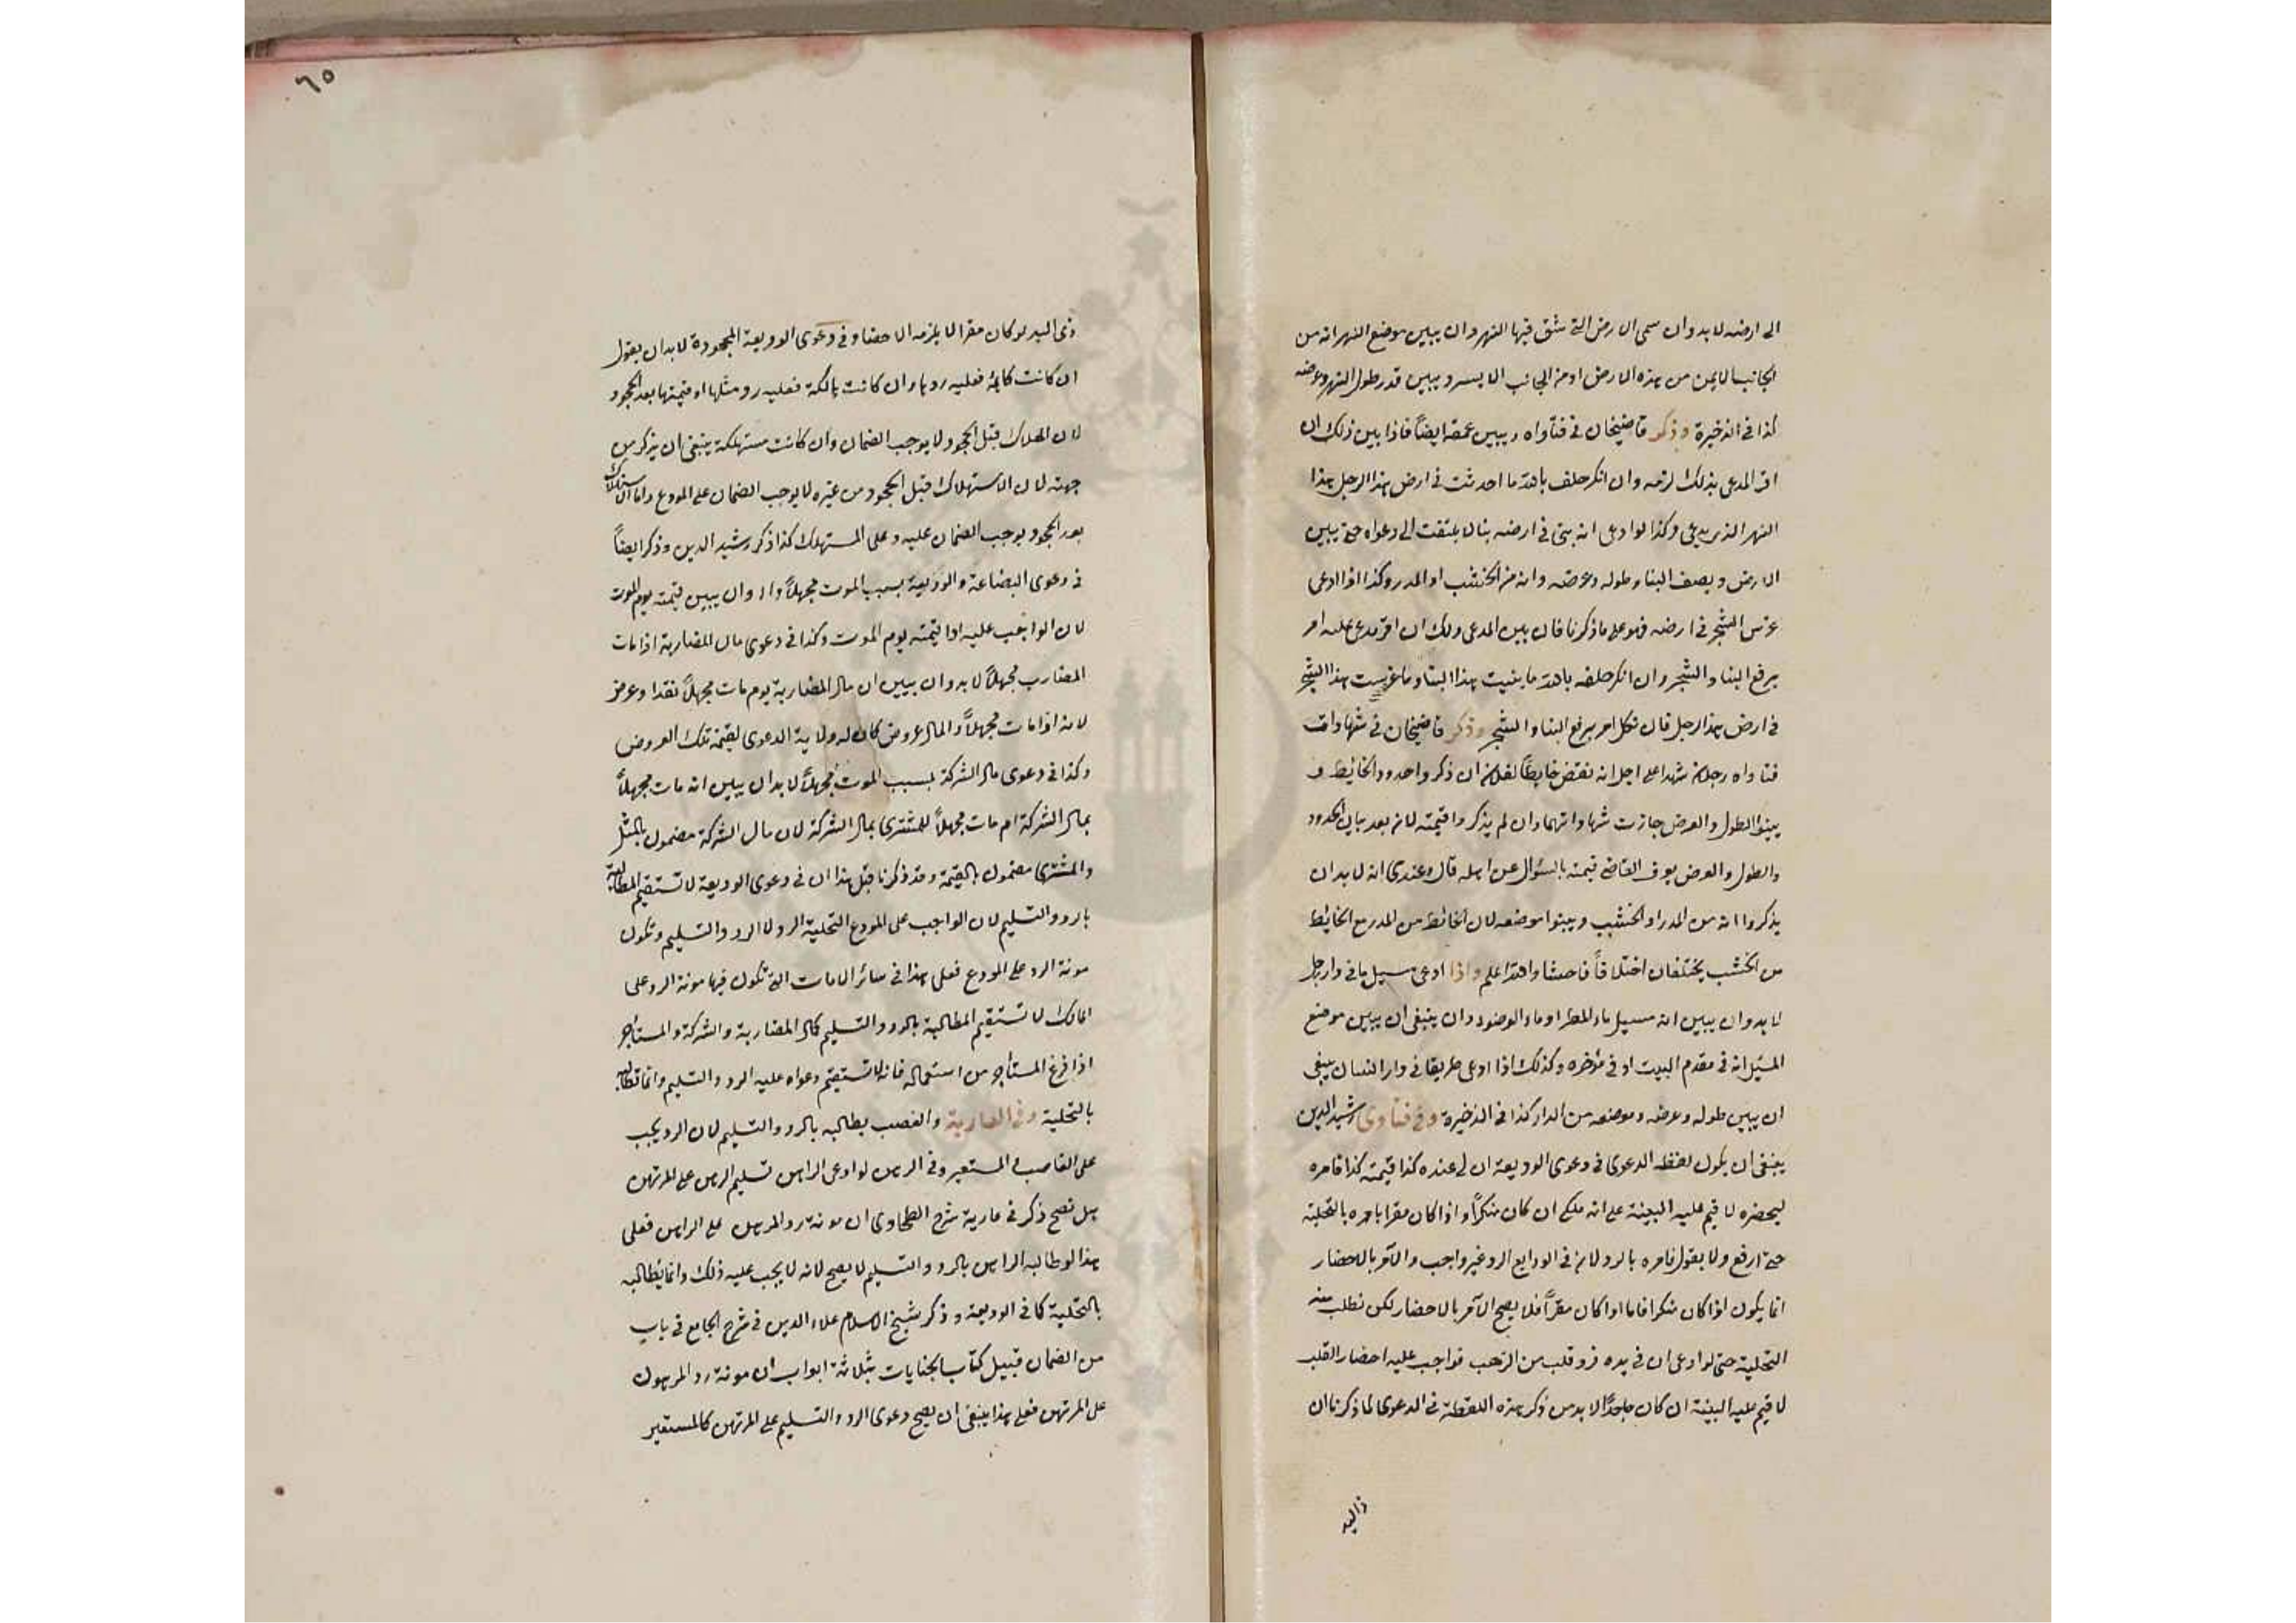 الى ارضه لا بد وان سمى الارض التى شق فيها النهر وان يبين موضع النهر انه من
الجانب الايمن من هذه الارض او من الجانب الايسر ويبين قدر طول النهر وعرضه
كذا فى الذخيرة وذكر قاضيخان فى فتاواه ويبين عمقه ايضاً فاذا بين ذلك ان
اقر المدعى بذلك لزمه وان انكر حلف بالله ما احدثت فى ارض هذا الرجل هذا
النهر الذى يدعى وكذا لو ادعى انه بنى فى ارضه بنا لا يلتفت الى دعواه حتى يبين
الارض ويصف البناء وطوله وعرضه وانه من الخشب او المدر وكذا اذا ادعى
غرس الشجر فى ارضه فهو على ما ذكرنا فان بين المدعى ذلك ان اقر مدعى عليه امر
برفع البنا والشجر وان انكر حلفه بالله ما بنيت هذا البنا وما غرست هذا الشجر
فى ارض هذا الرجل فان نكل امر برفع البنا والشجر وذكر قاضيخان فى شهادات
فتاواه رجلان شهدا على اجل انه نقض حايطاً لفلان ان ذكروا حدود الحائط و
بينوا الطول والعرض جازت شهادتهما وان لم يذكروا قيمته لانه بعد بيان الحدود
والطول والعرض يعرف القاضى قيمته بالسؤال عن اهله قال وعندى انه لا بد ان
يذكروا انه من المدر او الخشب ويبينوا موضعه لان الحائط من المدر مع الحائط
من الخشب يختلفان اختلافاً فاحشا والله اعلم واذا ادعى مسيل ما فى دار رجل
لا بد وان يبين انه مسيل ماء المطر او ماء الوضوء وان ينبغى ان يبين موضع
المسيل انه فى مقدم البيت او فى مؤخره وكذلك اذا ادعى طريقا فى دار انسان ينبغى
ان يبين طوله وعرضه وموضعه من الدار كذا فى الذخيرة وفى فتاوى رشيد الدين
ينبغى ان يكون لفظه الدعوى فى دعوى الوديعة ان لى عنده كذا قيمته كذا فامره
ليحضره لاقيم عليه البينة على انه ملكى ان كان منكراً واذا كان مقرا يامره بالتخلية
حتى ارفع ولا يقول فامره بالرد لان فى الودايع الرد غير واجب والامر بالاحضار
انما يكون اذا كان منكرا فاما اذا كان مقراً فلا يصح الامر بالاحضار لكن نطلب منه
التخلية حتى لو ادعى ان فى يده قلب من الذهب فواجب عليه احضار القلب
لاقيم عليه البينة ان كان جاحداً لا بد من ذكر هذه اللفظة فى الدعوى لما ذكرنا ان
ذى اليد
٦٥
ذى اليد لو كان مقرا لا يلزمه الاحضار وفى دعوى الوديعة المجحودة لا بد ان يقول
ان كانت قايمة فعليه ردها وان كانت هالكة فعليه رد مثلها او قيمتها بعد الجحود
لان الهلاك قبل الجحود لا يوجب الضمان وان كانت مستهلكة ينبغى ان يذكر من
جهته لان الاستهلاك قبل الجحود من غيره لا يوجب الضمان على المودع واما الاستهلاك
بعد الجحود يوجب الضمان عليه وعلى المستهلك كذا ذكر رشيد الدين وذكر ايضاً
فى دعوى البضاعة والوديعة بسبب الموت مجهلاً وان يبين قيمته يوم الموت
لان الواجب عليه ادا قيمته يوم الموت وكذا فى دعوى مال المضاربة اذا مات
المضارب مجهلاً لا بد وان يبين ان مال المضاربة يوم مات مجهلاً نقدا وعرض
لانه اذا مات مجهلاً والمال عروض كان له ولاية الدعوى لقيمة تلك العروض
وكذا فى دعوى مال الشركة بسبب الموت مجهلاً لا بد ان يبين انه مات مجهلاً
بمال الشركة ام مات مجهلاً للمشترى بمال الشركة لان مال الشركة مضمون بالمثل
والمشترى مضمون بالقيمة وقد ذكرنا قبل هذا ان فى دعوى الوديعة لا تستقيم المطالبة
بالرد والتسليم لان الواجب على المودع التخلية لا الرد والتسليم وتكون
مونة الرد على المودع فعلى هذا فى سائر الامانات التى تكون فيها مونة الرد على
المالك لا تستقيم المطالبة بالرد والتسليم كمال المضاربة والشركة والمستاجر
اذا فرغ المستأجر من استعماله فانه لا تستقيم دعواه عليه الرد والتسليم وانما تطالبه
بالتخلية وفى العارية والغصب يطالبه بالرد والتسليم لان الرد يجب
على الغاصب والمستعير وفى الرهن لو ادعى الراهن تسليم الرهن على المرتهن
هل تصح ذكر فى عارية شرح الطحاوى ان مونة رد المرهون على الراهن فعلى
هذا لو طالبه الراهن بالرد والتسليم لا يصح لانه لا يجب عليه ذلك وانما يطالبه
بالتخلية كما فى الوديعة وذكر شيخ الاسلام علاء الدين فى شرح الجامع فى باب
من الضمان قبيل كتاب الجنايات بثلاثة ابواب ان مونة رد المرهون
على المرتهن فعلى هذا ينبغى ان يصح دعوى الرد والتسليم على المرتهن كالمستعير